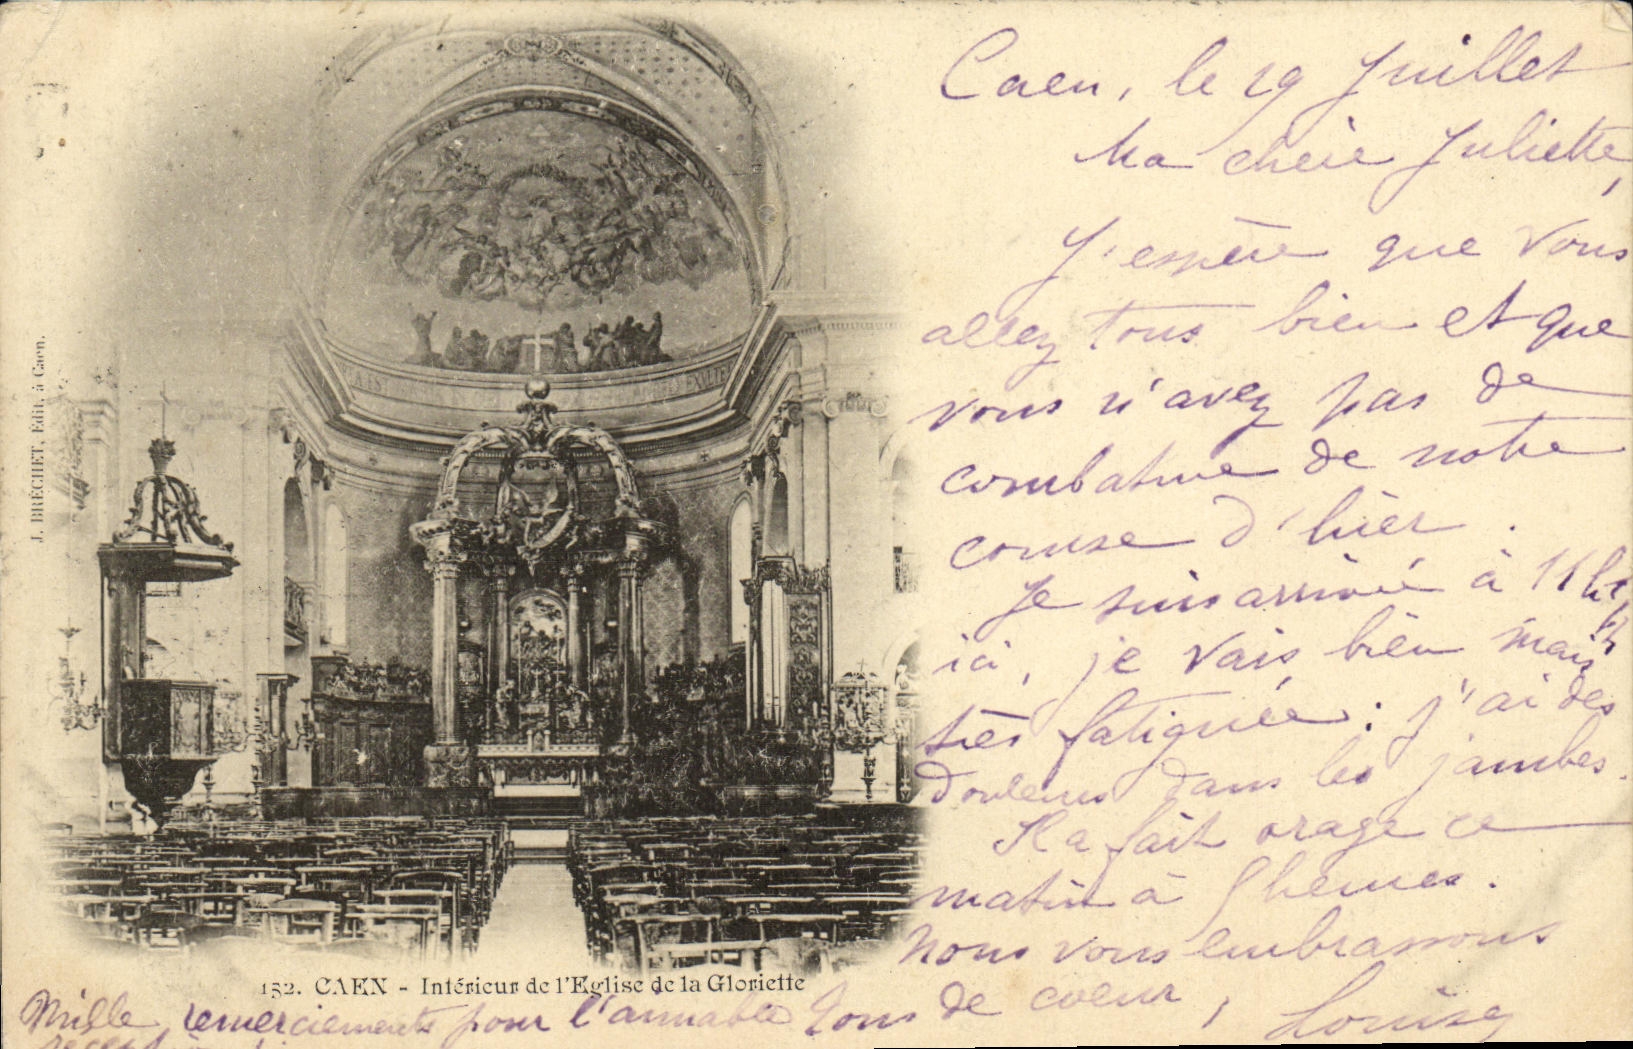 J. BRÉCHET, Edit. à Caen.
152. CAEN - Intérieur de l'Eglise de la Gloriette
Caen, le 29 Juillet
Ma chère Juliette,
J'espère que vous
allez tous bien et que
vous n'avez pas de
combature de notre
course d'hier.
Je suis arrivée à 11 h 1/4
ici, je vais bien mais
très fatiguée : j'ai des
douleurs dans les jambes.
Il a fait orage ce
matin à 9 heures.
Nous vous embrassons
tous de cœur, Louise
Mille remerciements pour l'aimable
réception